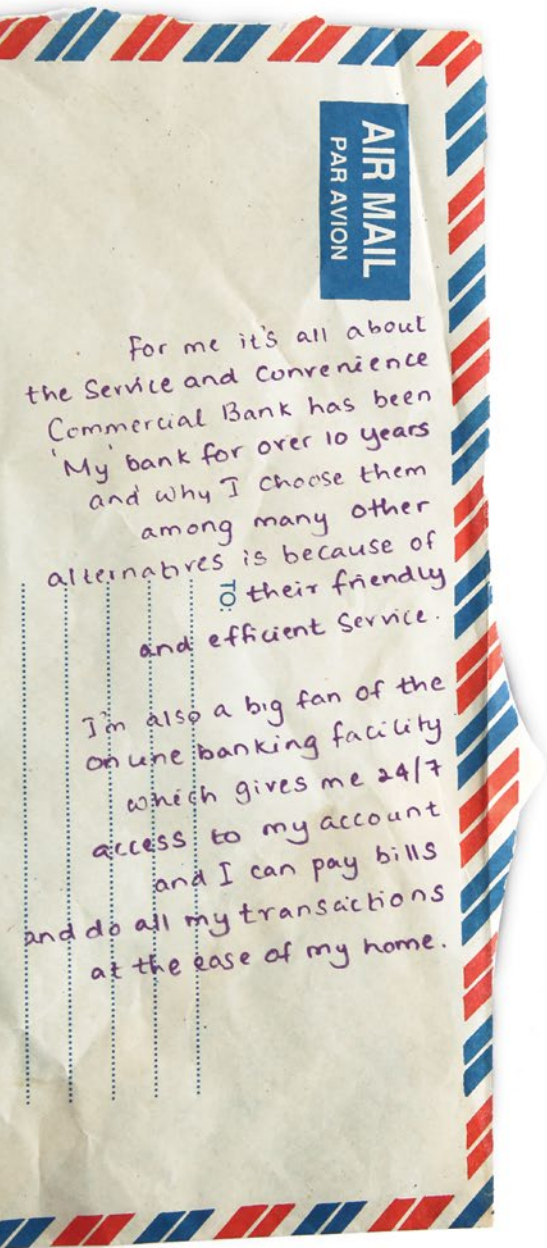 AIR MAIL
PAR AVION
For me it's all about
the Service and Convenience
Commercial Bank has been
'My' bank for over 10 years
and why I choose them
among many other
alternatives is because of
TO:
their friendly
and efficient Service.
I'm also a big fan of the
online banking facility
which gives me 24/7
access to my account
and I can pay bills
and do all my transactions
at the ease of my home.